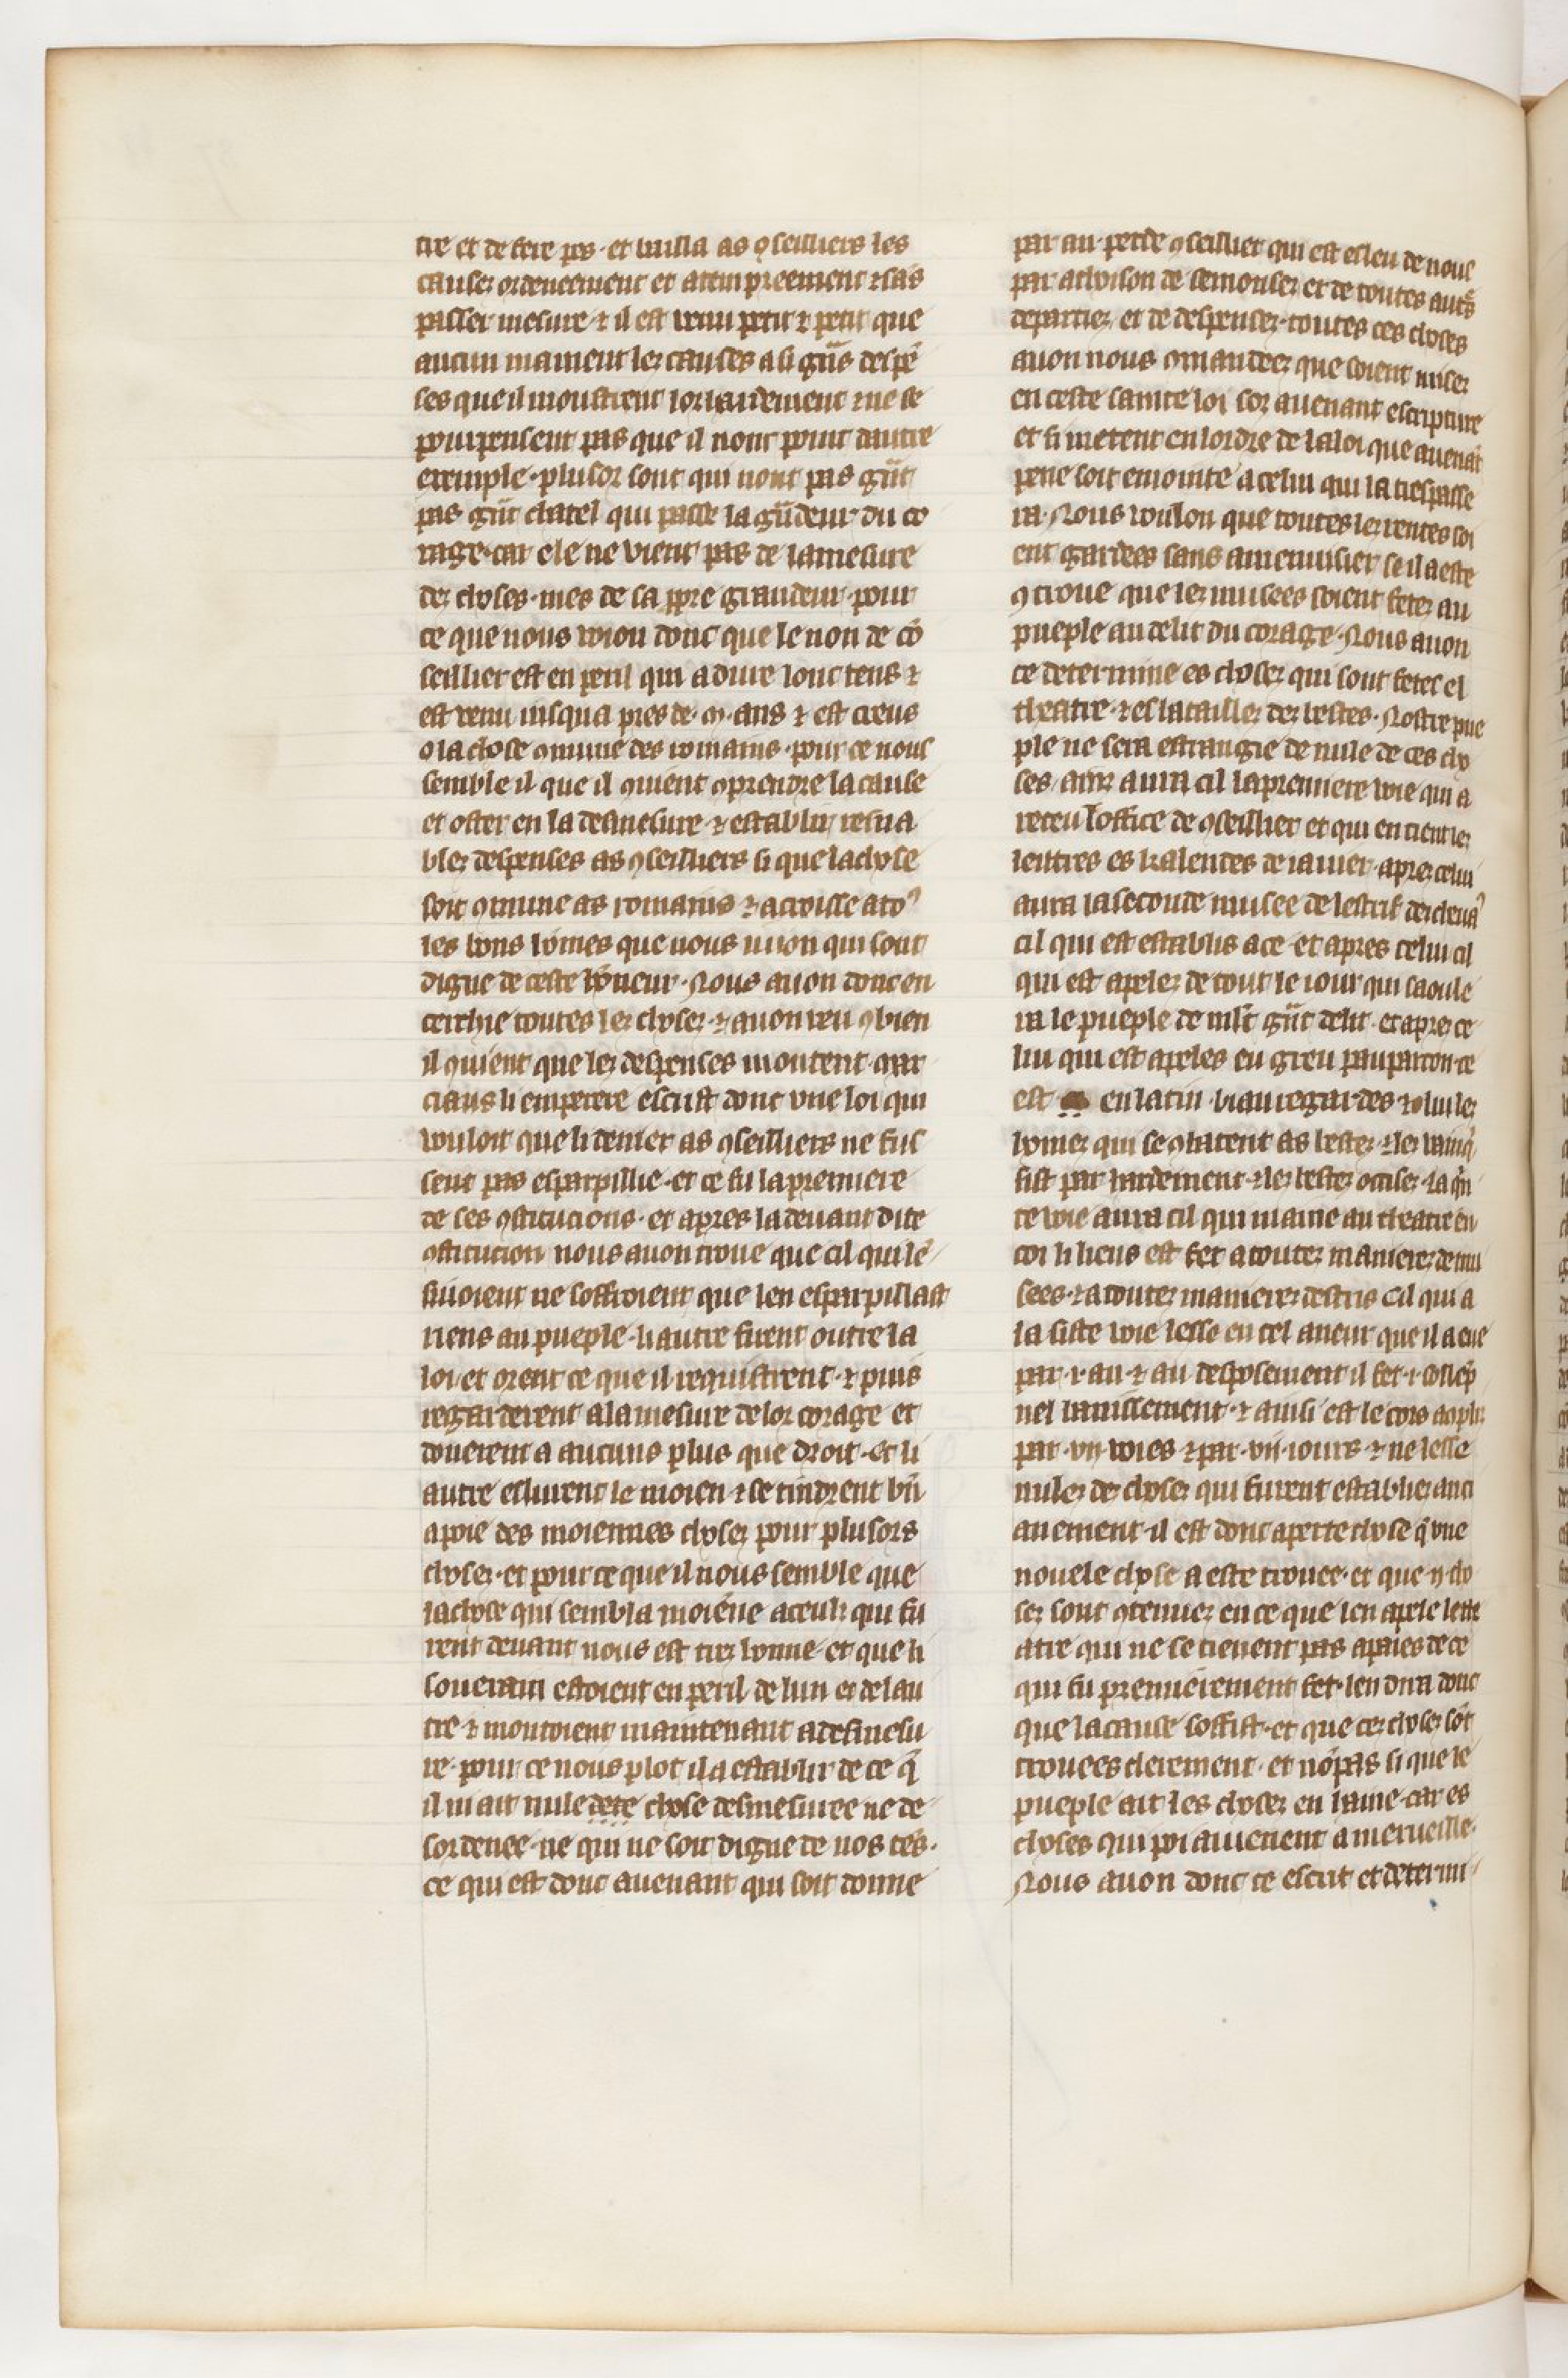 tre et de fere pes · et bailla as ꝯseilliers les
causes ordeneement et attempreement ⁊ sãs
passer mesure · ⁊ il est venu petit ⁊ petit que
aucun mainent les causes a si gñs despẽ
ses que il moustrent lor hardement ⁊ ne se
pourpensent pas que il nont point dautre
exemple · plusor sont qui nont pas gñt
pas gñt chatel qui passe la gñdeur du co
rage · car ele ne vient pas de la mesure
des choses · mes de sa ꝓpre grandeur · pour
ce que nous voion donc que le non de cõ
seillier est en peril qui a dure lonc tens ⁊
est venu iusqua pres de · m · ans ⁊ est creus
o la chose ꝯmune des romains · pour ce nous
semble il que il ꝯuient ꝯprendre la cause
et oster en la desmesure ⁊ establir resna
bles despenses as ꝯseilliers si que la chose
soit ꝯmune as romains ⁊ acroisse a toꝰ
les bons homes que nous iuion qui sont
digne de ceste honeur · Nous auon donc en
cerchie toutes les choses · ⁊ auon veu ꝯbien
il ꝯuient que les despenses montent · mar
cians li emperere escrist donc vne loi qui
vouloit que li denier as ꝯseilliers ne fus
sent pas esparpillie · et ce fu la premiere
de ses ꝯstitucions · et apres la deuant dite
ꝯstitucion nous auon troue que cil qui le
siuoient ne soffroient que len esparpillast
riens au pueple · li autre furent outre la
loi · et orent ce que il requistrent · ⁊ puis
regarderent a la mesure de lor corage et
donerent a aucuns plus que droit · et li
autre eslurent le moien ⁊ se tindrent bñ
a poie des moiennes choses pour plusors
choses · et pour ce que il nous semble que
la chose qui sembla moiẽne a ceuls qui fu
rent deuant nous est tres bonne · et que li
souerain estoient en peril de lun et de lau
tre ⁊ montoient maintenant a desmesu
re · pour ce nous plot il a establir de ce q̃
il ni ait nule dete chose desmesuree ne de
sordenee · ne qui ne soit digne de nos tẽs ·
ce qui est donc auenant qui soit donne
par an · part de ꝯseillier qui est esleu de nous
par achoison de semonses et de toutes autˢ
departies et de despenses · toutes ces choses
auon nous ꝯmandees que soient mises
en ceste sainte loi sor auenant escripture
et si metent en lordre de la loi que auenãt
pene soit enointe a celui qui la trespasse
ra · Nous voulon que toutes les rentes soi
ent gardees sans amenuisier se il a este
ꝯtroue que les musees soient fetes au
pueple au delit du corage · Nous auon
ce determine es choses qui sont fetes el
theatre · ⁊ es batailles des bestes · Nostre pue
ple ne sera estrangie de nule de ces cho
ses · ainz aura cil la premiere voie qui a
receu loffice de ꝯseillier et qui en tient les
lettres es kalendes de ianuier · apres celui
aura la seconde musee de lestrif des cheuaꝰ
cil qui est establis a ce · et apres celui cil
qui est apeles de tout le iour qui saoule
ra le pueple de mlt gñt delit · et apres ce
lui qui est apeles en greu pauparton · ce
est en latin biau regardes ⁊ o lui les
homes qui se ꝯbatent as bestes · ⁊ les vainq̃
sist par hardement · ⁊ les bestes occises · la q̃n
te voie aura cil qui maine au theatre en
coi li lieus est fet a toutes manieres de mu
sees · ⁊ a toutes manieres destris cil qui a
la siste voie lesse en cel aneur que il a eue
par · i · an · ⁊ au desposement il fet · i · ꝯseilp̃
nel banissement · ⁊ ainsi est le cors acꝯplis
par · vii · voies ⁊ par · vii · iours · ⁊ ne lesse
nules des choses qui furent establies anci
anement · il est donc aperte chose q̃ vne
nouele chose a este trouee · et que · ii · cho
ses sont ꝯtenues en ce que len apele lette
atre qui ne se tienent pas apaies de ce
qui fu premierement fet · len dira donc
que la cause soffist · et que ces choses sõt
trouees clerement · et nõ pas si que le
pueple ait les choses en haine · car es
choses qui poi auienent a merueille ·
Nous auon donc ce escrit et determi